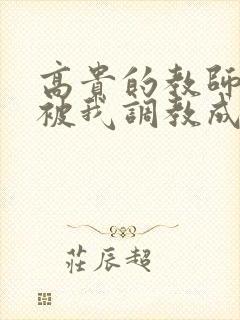 高貴的教師
被我調教成
莊辰超